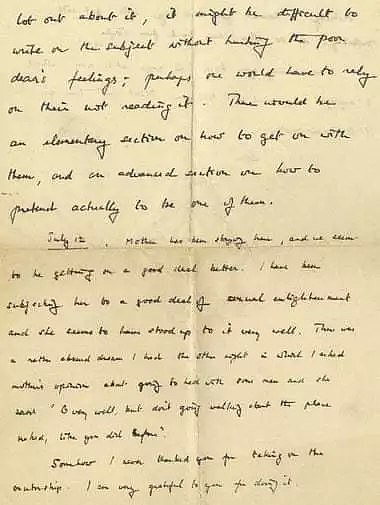 lot out about it, it might be difficult to
write on the subject without hurting the poor
dear's feelings; perhaps one would have to rely
on their not reading it. There would be
an elementary section on how to get on with
them, and an advanced section on how to
pretend actually to be one of them.
July 12. Mother has been staying here, and we seem
to be getting on a good deal better. I have been
subjecting her to a good deal of sexual enlightenment
and she seems to have stood up to it very well. There was
a rather absurd dream I had the other night in which I asked
mother's opinion about going to bed with some men and she
said 'O very well, but don't go walking about the place
naked, like you did before'.
Somehow I never thanked you for taking on the
executorship. I am very grateful to you for doing it.